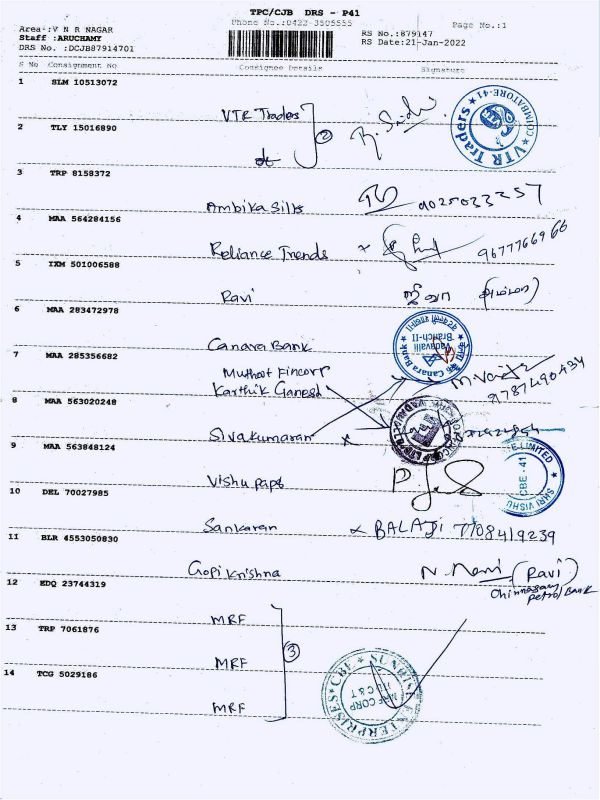 TPC/CJB DRS - P41
Phone No.:0422 3505555
Page No.:1
Area :V N R NAGAR
Staff :ARUCHAMY
DRS No. :DCJB87914701
RS No.:879147
RS Date:21-Jan-2022
S No Consignment No Consignee Details Signature
1 SLM 10513072
VTR Traders
2 TLY 15016890
②
VTR Traders COIMBATORE-41
3 TRP 8158372
Ambika Silks 9025033257
4 MAA 564284156
Reliance Trends 9677766966
5 IXM 501006588
Ravi ஜீவா (அம்மா)
6 MAA 283472978
Canara Bank
Canara Bank Vadavalli Branch-II
7 MAA 285356682
Muthoot Fincorp
Karthik Ganesh
9787490434
8 MAA 563020248
Sivakumaran
9 MAA 563848124
Vishu paps
LIMITED SHRI VISHU CBE - 41
10 DEL 70027985
Sankaran BALAJI 7708419239
11 BLR 4553050830
Gopi Krishna N. Mani (Ravi)
Chinnasamy
Petrol Bank
12 EDQ 23744319
MRF
13 TRP 7061876
③
MRF
14 TCG 5029186
MRF